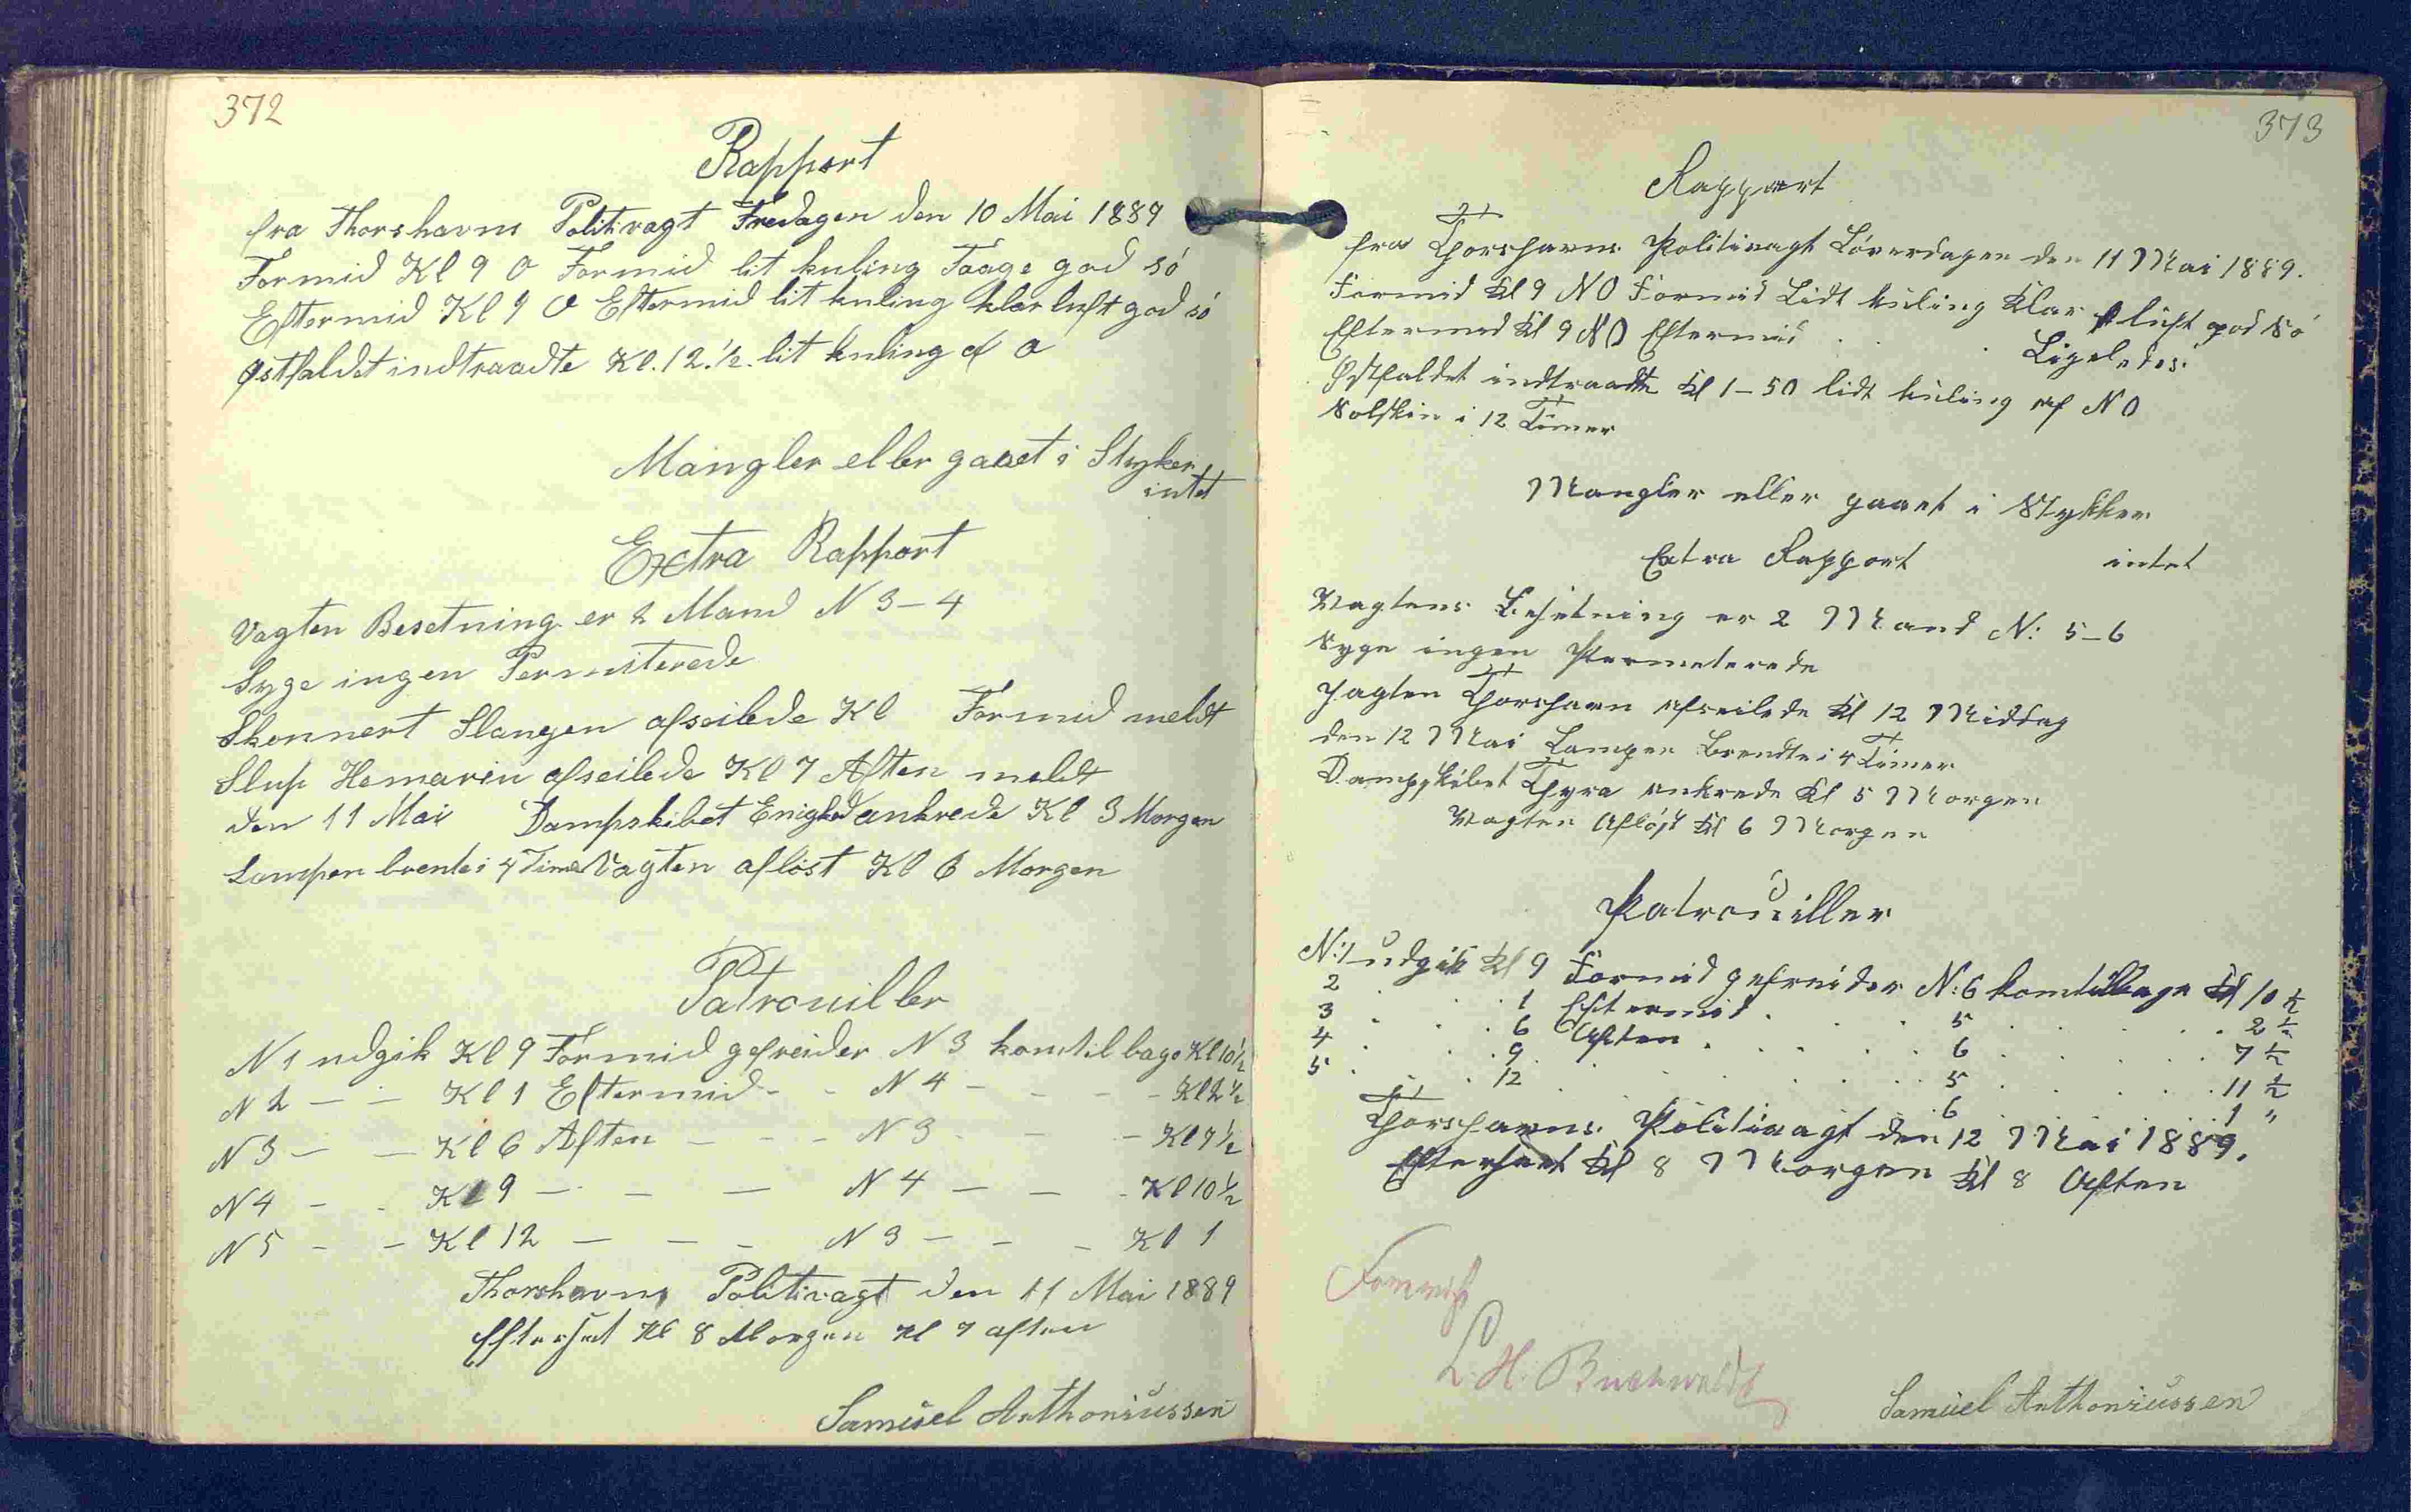 372
Rapport
fra Thorshavns Politivagt Fredagen den 10 Mai 1889
Formid Kl 9 O Formid lit kuling Taage god só
Eftermid Kl 9 O Eftermid lit kuling klar luft god só
Østfaldet indtraadte Kl. 12. ½. lit kuling af O
Mangler eller gaaet i Styker
intet
Extra Rapport
Vagten Besetning er 2 Mand N 3-4
Syge ingen Permiterede
Skonnert Slangen afseilede Kl Formid meldt
Slup afseilede Kl 7 Aften meldt
den 11 Mai Dampskibet Enighed ankrede Kl 3 Morgen
Lampen brente i 4 Time Vagten aflöst Kl 6 Morgen
Patrouiller
N 1 udgik Kl 9 Formid gefreider N 3 kom tilbage Kl 10½
N 2 — — Kl 1 Eftermid - - N 4 - - - - Kl 2½
N 3 — — Kl 6 Aften — - - N 3 - - - Kl 7½
N 4 - - Kl 9 — — — N 4 — — - Kl 10½
N 5 - — Kl 12 — — - N 3 — - - Kl 1
Thorshavns Politivagt den 11 Mai 1889
Efterset Kl 8 Morgen Kl 7 aften
Samuel Anthoniussen
373
Rapport
fra Thorshavns Politivagt Löverdagen den 11 Mai 1889.
Formid Kl 9 NO Formid Lidt kuling Klar luft god Só
Eftermid Kl 9 NO Eftermid . . . Ligeledes.
Østfaldet indtraadte Kl 1-50 lidt kuling af NO
Solskin i 12 Timer
Mangler eller gaaet i Stykker
intet
Extra Rapport
Vagtens Besetning er 2 Mand N: 5-6
Syge ingen Permeterede
Jagten Thorshavn afseilede Kl 12 Middag
den 12 Mai Lampen Brendte i 4 Timer
Dampskibet Thyra ankrede Kl 5 Morgen
Vagten Aflöst Kl 6 Morgen
Patrouiller
N: 1 udgik Kl 9 Formid gefreider N: 6 kom tilbage Kl 10 ½
2 . . . 1 Eftermid . . . 5 . . . . 2 ½
3 . . . 6 Aften . . . . 6 . . . . 7 ½
4 . . . 9 . . . . . . 5 . . . . 11 ½
5 . . . 12 . . . . . . 6 . . . . 1 "
Thorshavns Politivagt den 12 Mai 1889.
Efterseet Kl 8 Morgen Kl 8 Aften
L. H. Buchwaldt
Samuel Anthoniussen